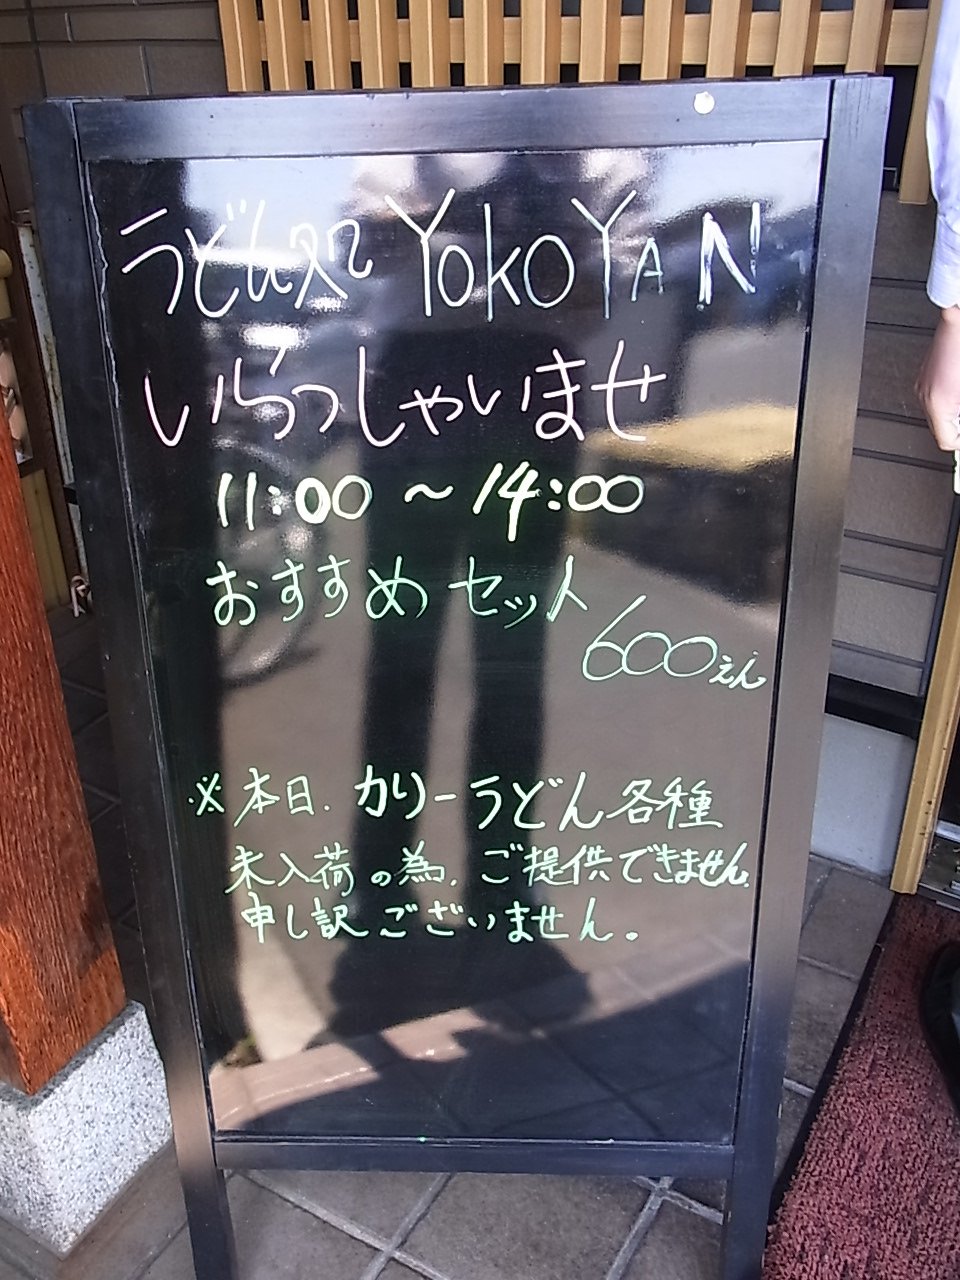 うどん処 YOKOYAN
いらっしゃいませ
11:00 ~ 14:00
おすすめ セット
600えん
※本日、カリーうどん各種
未入荷の為、ご提供できません。
申し訳ございません。